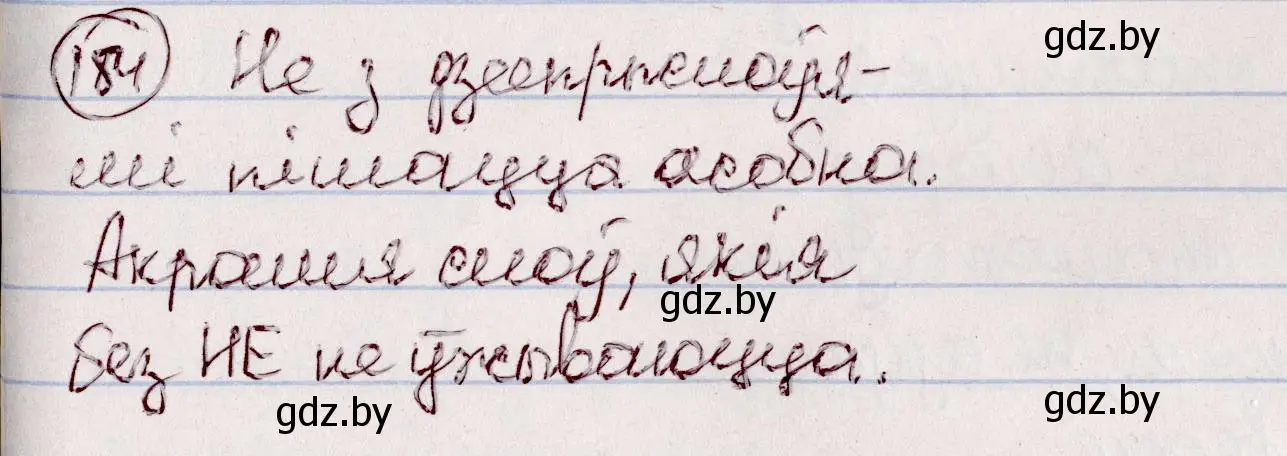 184 Не з дзеепрыслоўя-
мі пішацца асобна.
Акрамя слоў, якія
без НЕ не ўжываюцца.
gdz.by
gdz.by
gdz.by
gdz.by